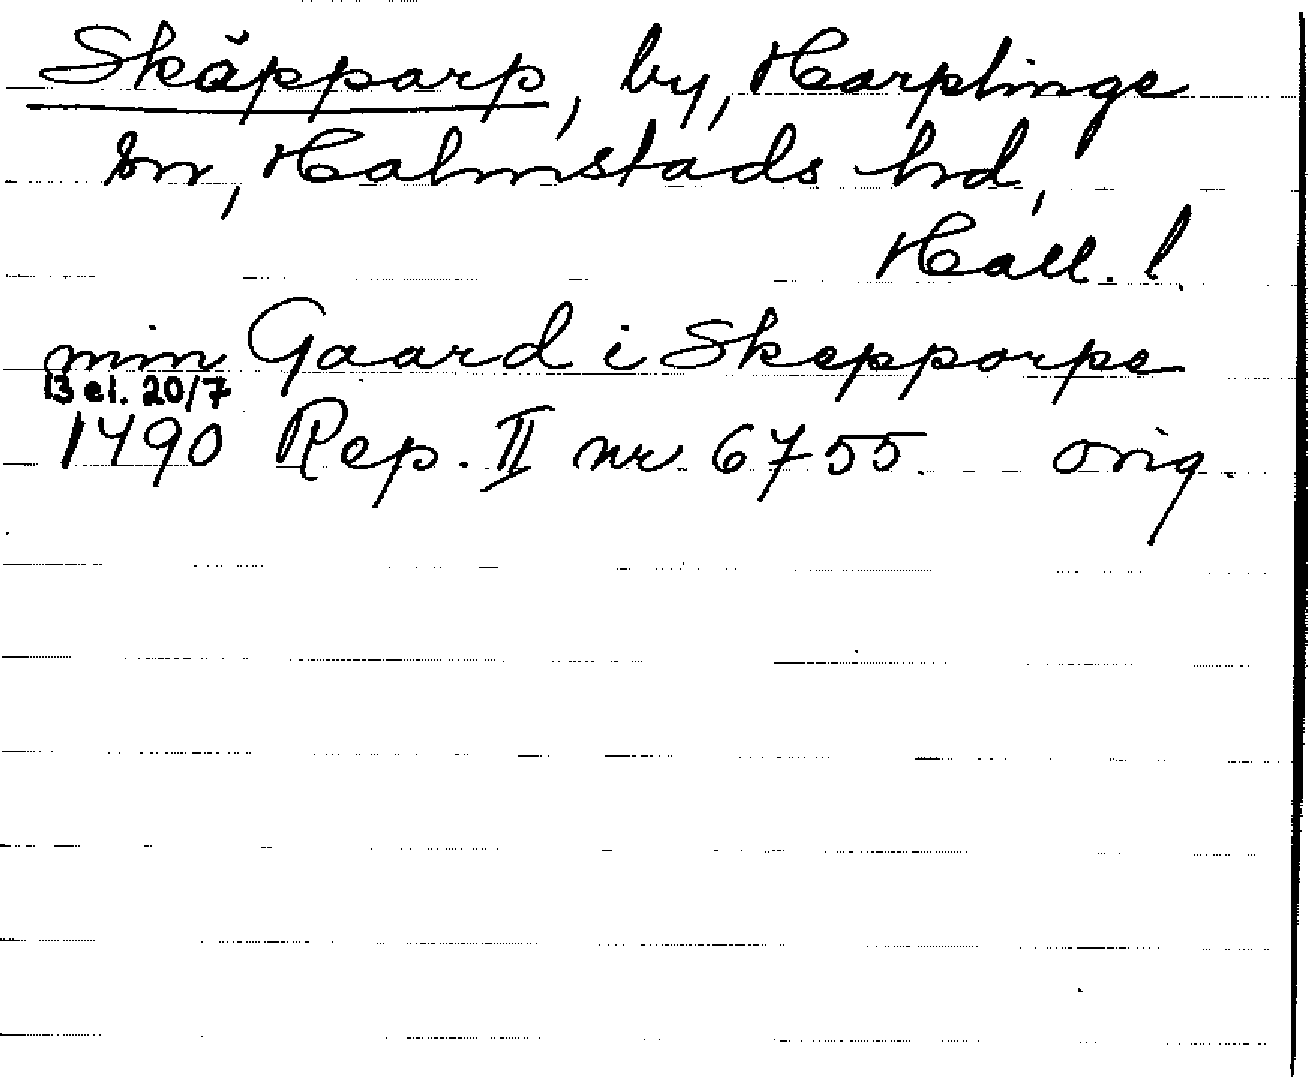 Skäpparp, by, Harplinge
sn, Halmstads hd,
Hall. l.
min Gaard i Skepporpe
13 el. 20/7
1490 Rep. II nr 6755. orig.